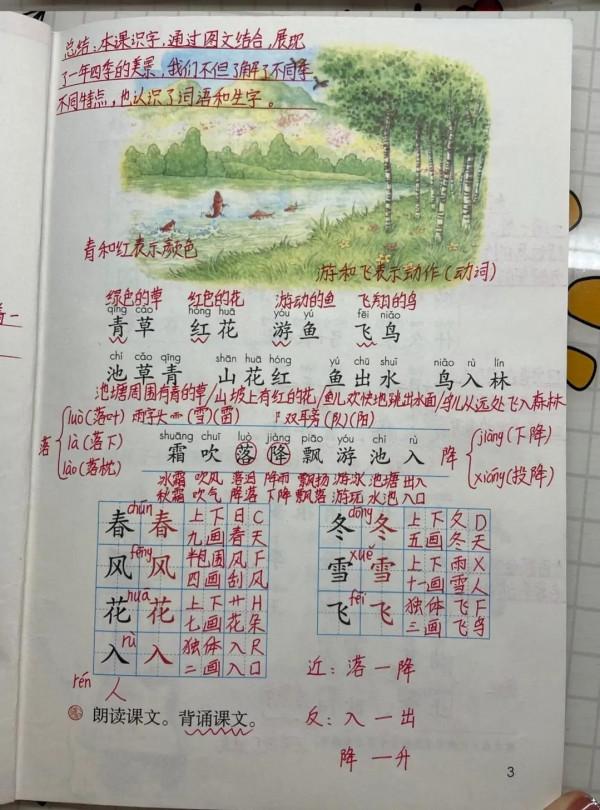 总结:本课识字,通过图文结合,展现
了一年四季的美景,我们不但了解了不同季
不同特点,也认识了词语和生字。
青和红表示颜色
游和飞表示动作(动词)
绿色的草 红色的花 游动的鱼 飞翔的鸟
qīng cǎo hóng huā yóu yú fēi niǎo
青草 红花 游鱼 飞鸟
chí cǎo qīng shān huā hóng yú chū shuǐ niǎo rù lín
池草青 山花红 鱼出水 鸟入林
池塘周围有青的草/山坡上有红的花/鱼儿欢快地跳出水面/鸟儿从远处飞入森林
luò(落叶) 雨字头⻗(雪)(雷) 阝双耳旁(队)(阳)
落 là(落下)
lào(落枕)
shuāng chuī luò jiàng piāo yóu chí rù
霜 吹 落 降 飘 游 池 入
降 jiàng(下降)
xiáng(投降)
水霜 吹风 落迫 降雨 飘扬 游泳 池塘 出入
秋霜 吹气 降落 下降 飘落 游玩 水池 入口
chūn
春 春 上下 日 C
九画 春天
fēng
风 风 半包围 风 F
四画 刮风
huā
花 花 上下 艹 H
七画 花朵
rù
入 入 独体 入 R
二画 入口
dōng
冬 冬 上下 夂 D
五画 冬天
xuě
雪 雪 上下 雨 X
十一画 雪人
fēi
飞 飞 独体 飞 F
三画 飞鸟
rén 人
近:落—降
朗读课文。背诵课文。
反:入—出
降—升
3